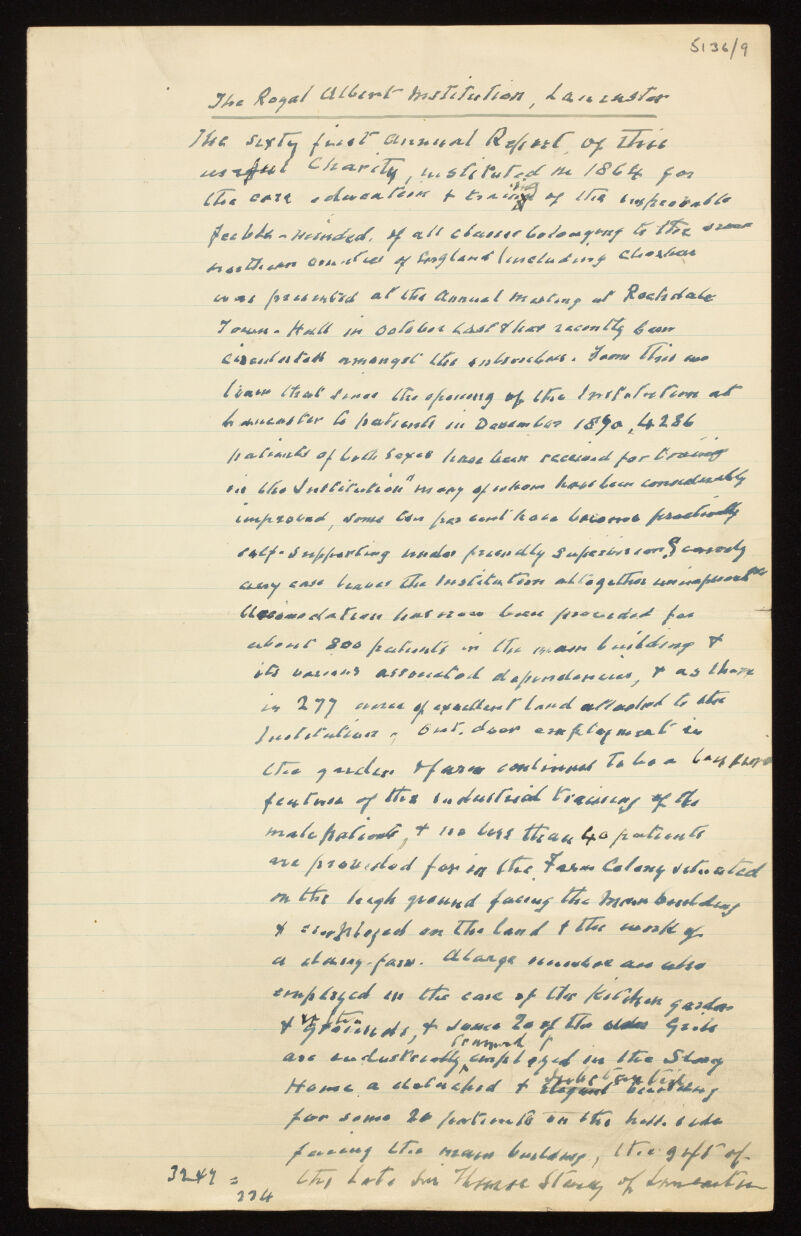 5136/9
The Royal Albert Institution, Lancaster
The sixty first Annual Report of this
useful Charity, instituted in 1864 for
the care education & training of the improvable
feeble-minded, of all classes belonging to the seven
northern counties of England (including Cheshire
was presented at the Annual meeting at Rochdale
Town-Hall in October last & has recently been
circulated amongst the subscribers. From this we
learn that since the opening of the Institution at
Lancaster to patients in December 1870, 4286
patients of both sexes have been received for training
in the Institution" many of whom have been considerably
improved, some ten per cent have become practically
self-supporting under friendly supervision, & scarcely
any case leaves the Institution altogether unimproved
Accomodation has now been provided for
about 800 patients in the main building &
its various associated dependencies, & as there
is 277 acres of excellent land attached to the
Institution, Out-door employment in
the garden & farm continues to be a
feature of the industrial training of the
male patients, & no less than 40 patients
are provided for in the Farm Colony situated
on the high ground facing the main building
& employed on the land & the work of
a dairy-farm. A large number are also
employed in the care of the Kitchen garden
& grounds, & some 20 of the older Girls
are industrially employed in the Storey
Home a detached & substantial building
for some 20 patients on the hill side
facing the main building, the gift of
the late Sir Thomas Storey of Lancaster
3247 =
224